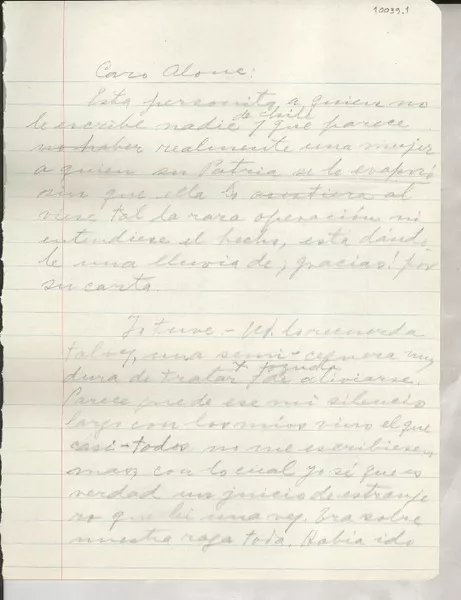 10039.1
Caro Alone:
Esta personita a quien no
le escribe nadie de Chile y que parece
no haber realmente una mujer
a quien su Patria se le evaporó
sin que ella asistiera al
tal la rara operación ni
entendiese el hecho, está dándo
le una lluvia de ¡gracias! por
su carta.
Yo tuve - Ud. lo recuerda
tal vez, una semi-ceguera muy
dura de tratar y de aliviarse.
Parece que de ese mi silencio
largo con los míos vino el que
casi-todos no me escribiesen
mas, con lo cual yo sé que es
verdad un juicio de extranje
ro que leí una vez. Era sobre
nuestra raza toda. Había ido